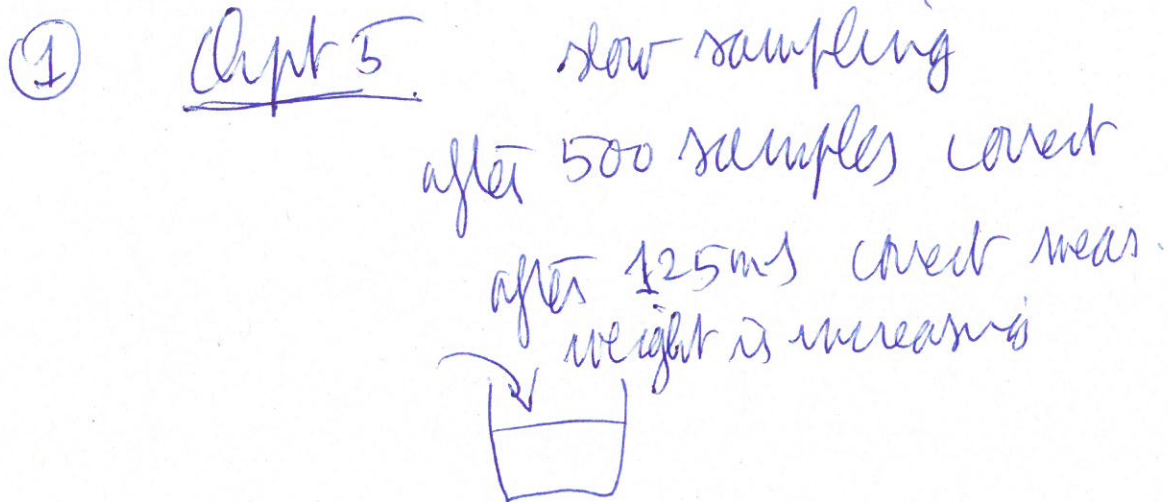 ① Chpt 5 slow sampling
after 500 samples correct
after 125ms correct meas.
weight is increasing